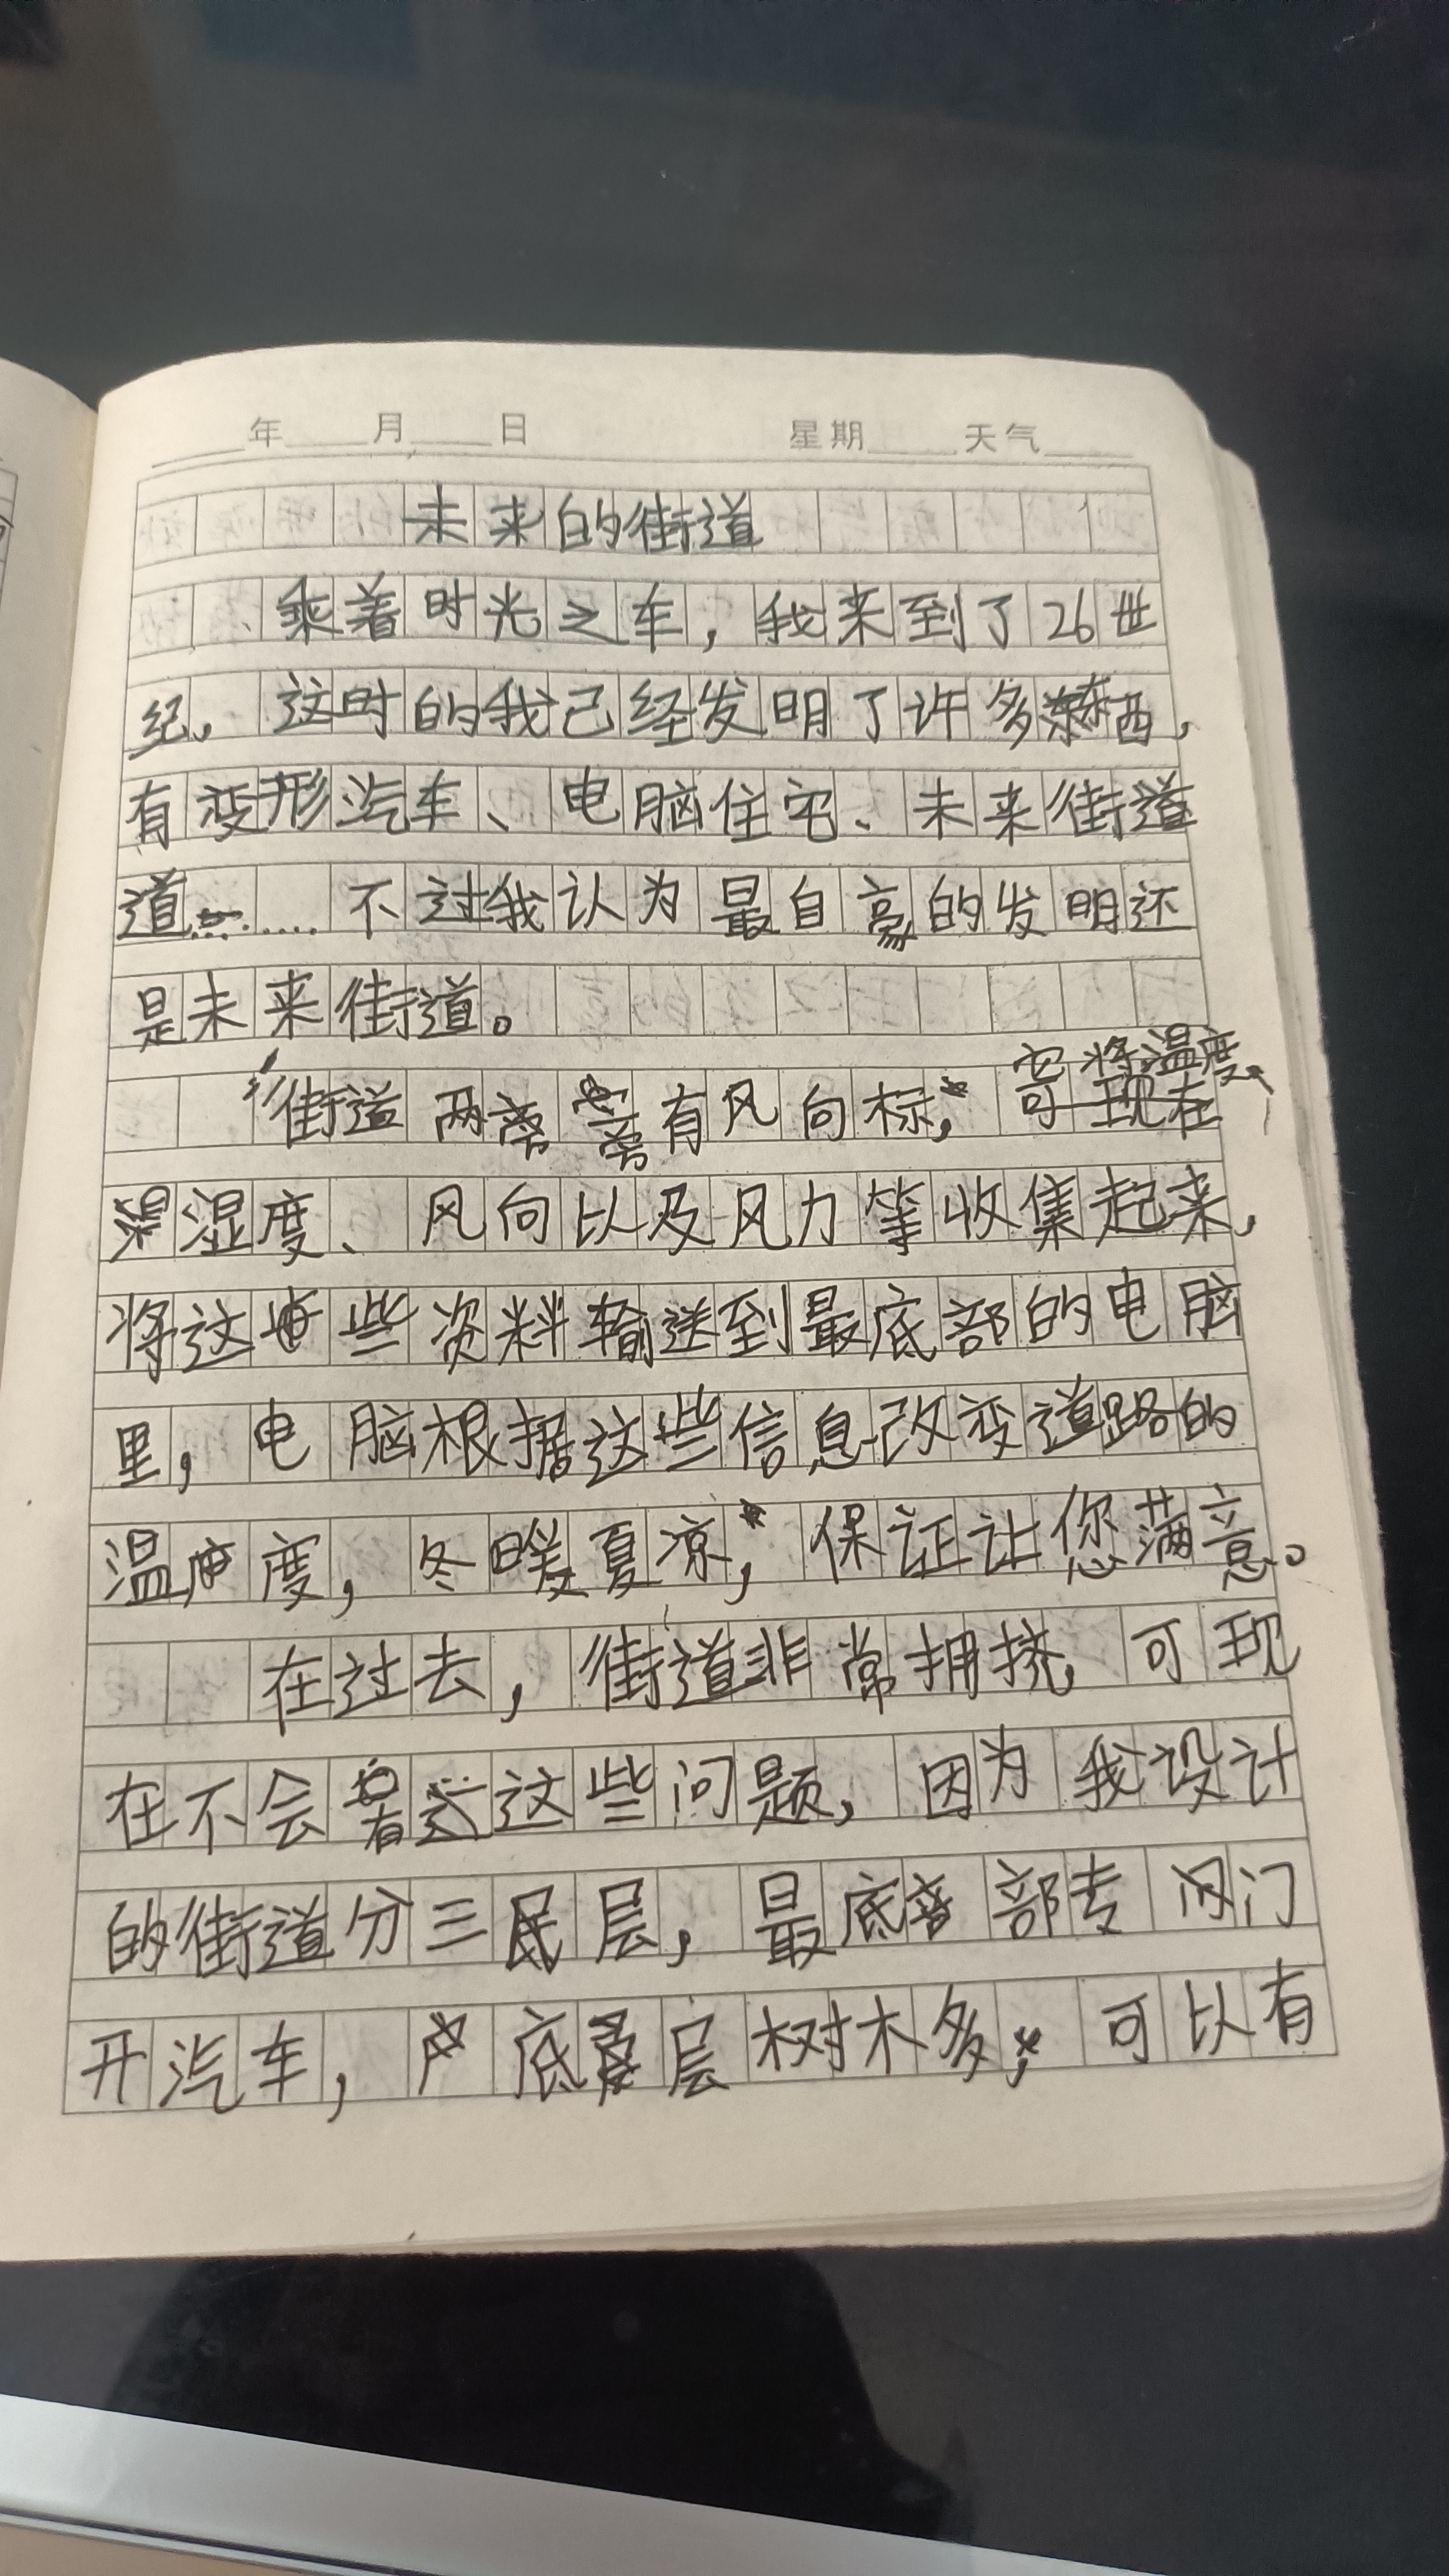 年 月 日 星期 天气
未来的街道
乘着时光之车，我来到了26世
纪。这时的我已经发明了许多东西，
有变形汽车、电脑住宅、未来街道
道……不过我认为最自豪的发明还
是未来街道。
它将温度、
街道两旁有风向标，可现在
湿度、风向以及风力等收集起来，
将这些资料输送到最底部的电脑
里，电脑根据这些信息改变道路的
温度，冬暖夏凉，保证让您满意。
在过去，街道非常拥挤，可现
在不会有这些问题，因为我设计
的街道分三层，最底部专门
开汽车，底层树木多，可以有